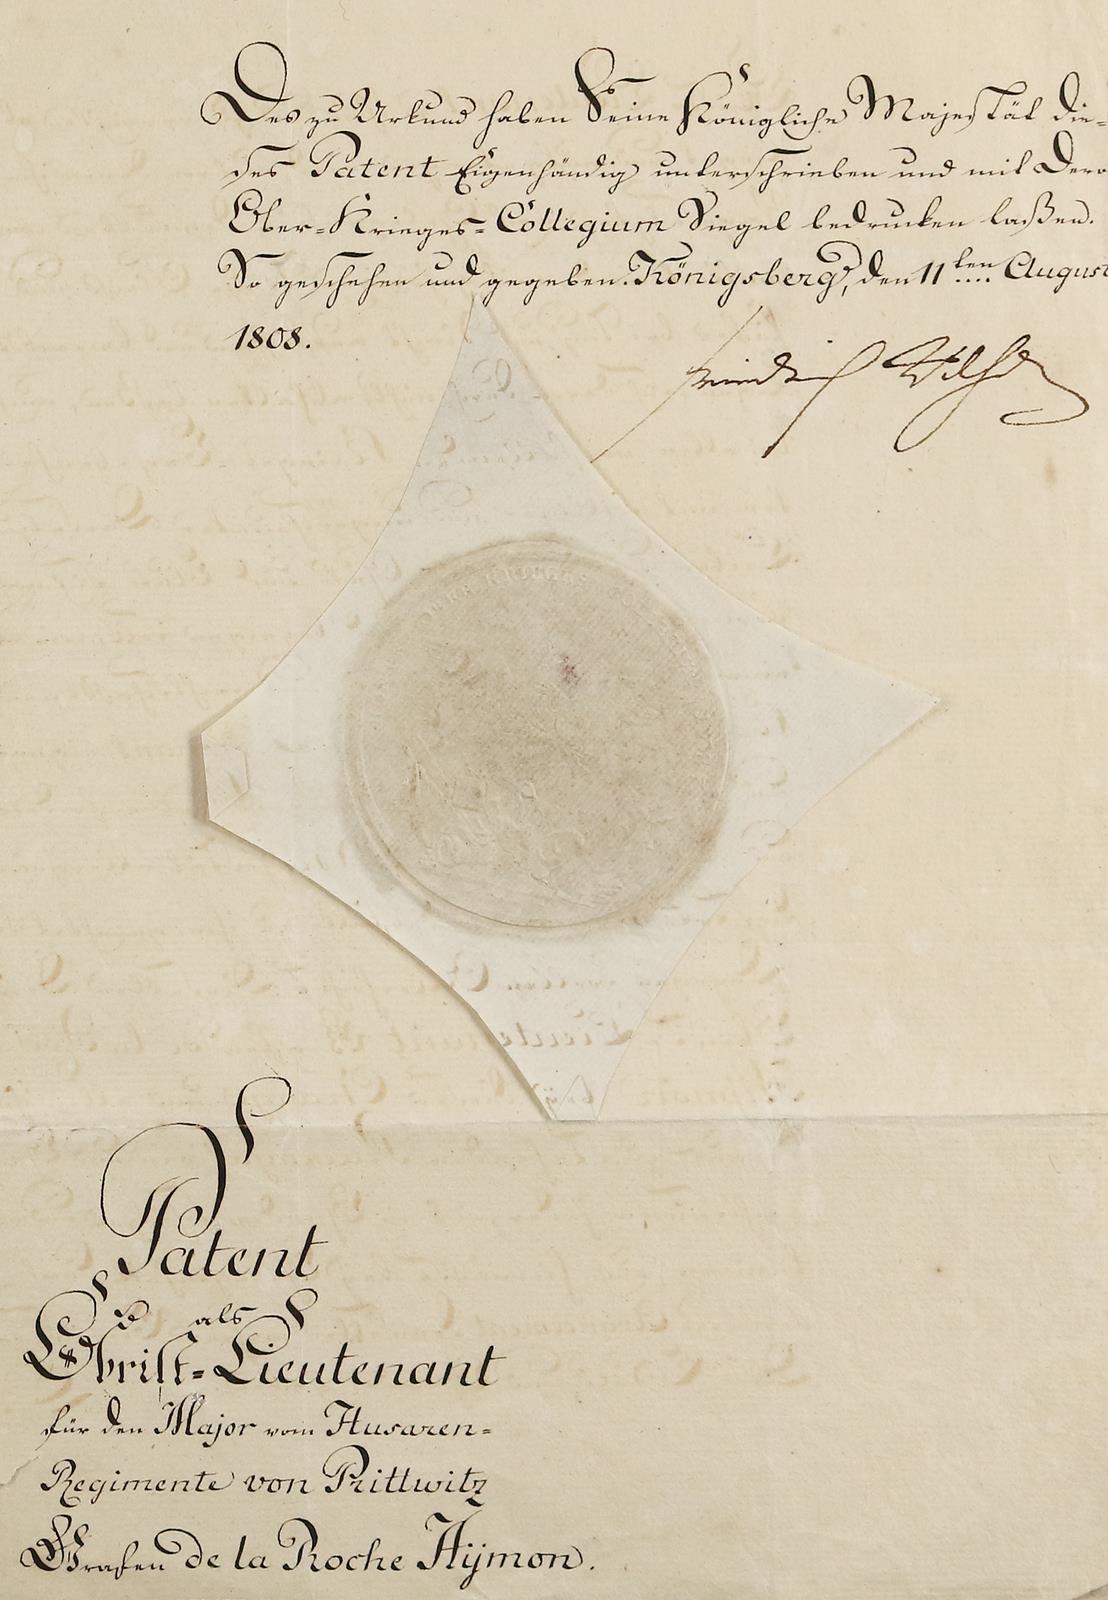 Des zu Urkund haben Seine Königliche Majestät die-
ses Patent Eigenhändig unterschrieben und mit Dero
Ober-Krieges-Collegium Siegel bedrucken laßen.
So geschehen und gegeben. Königsberg, den 11ten August
1808.
Friedrich Wilhelm
Patent
als
Obrist-Lieutenant
für den Major vom Husaren-
Regimente von Prittwitz
Grafen de la Roche Aÿmon.